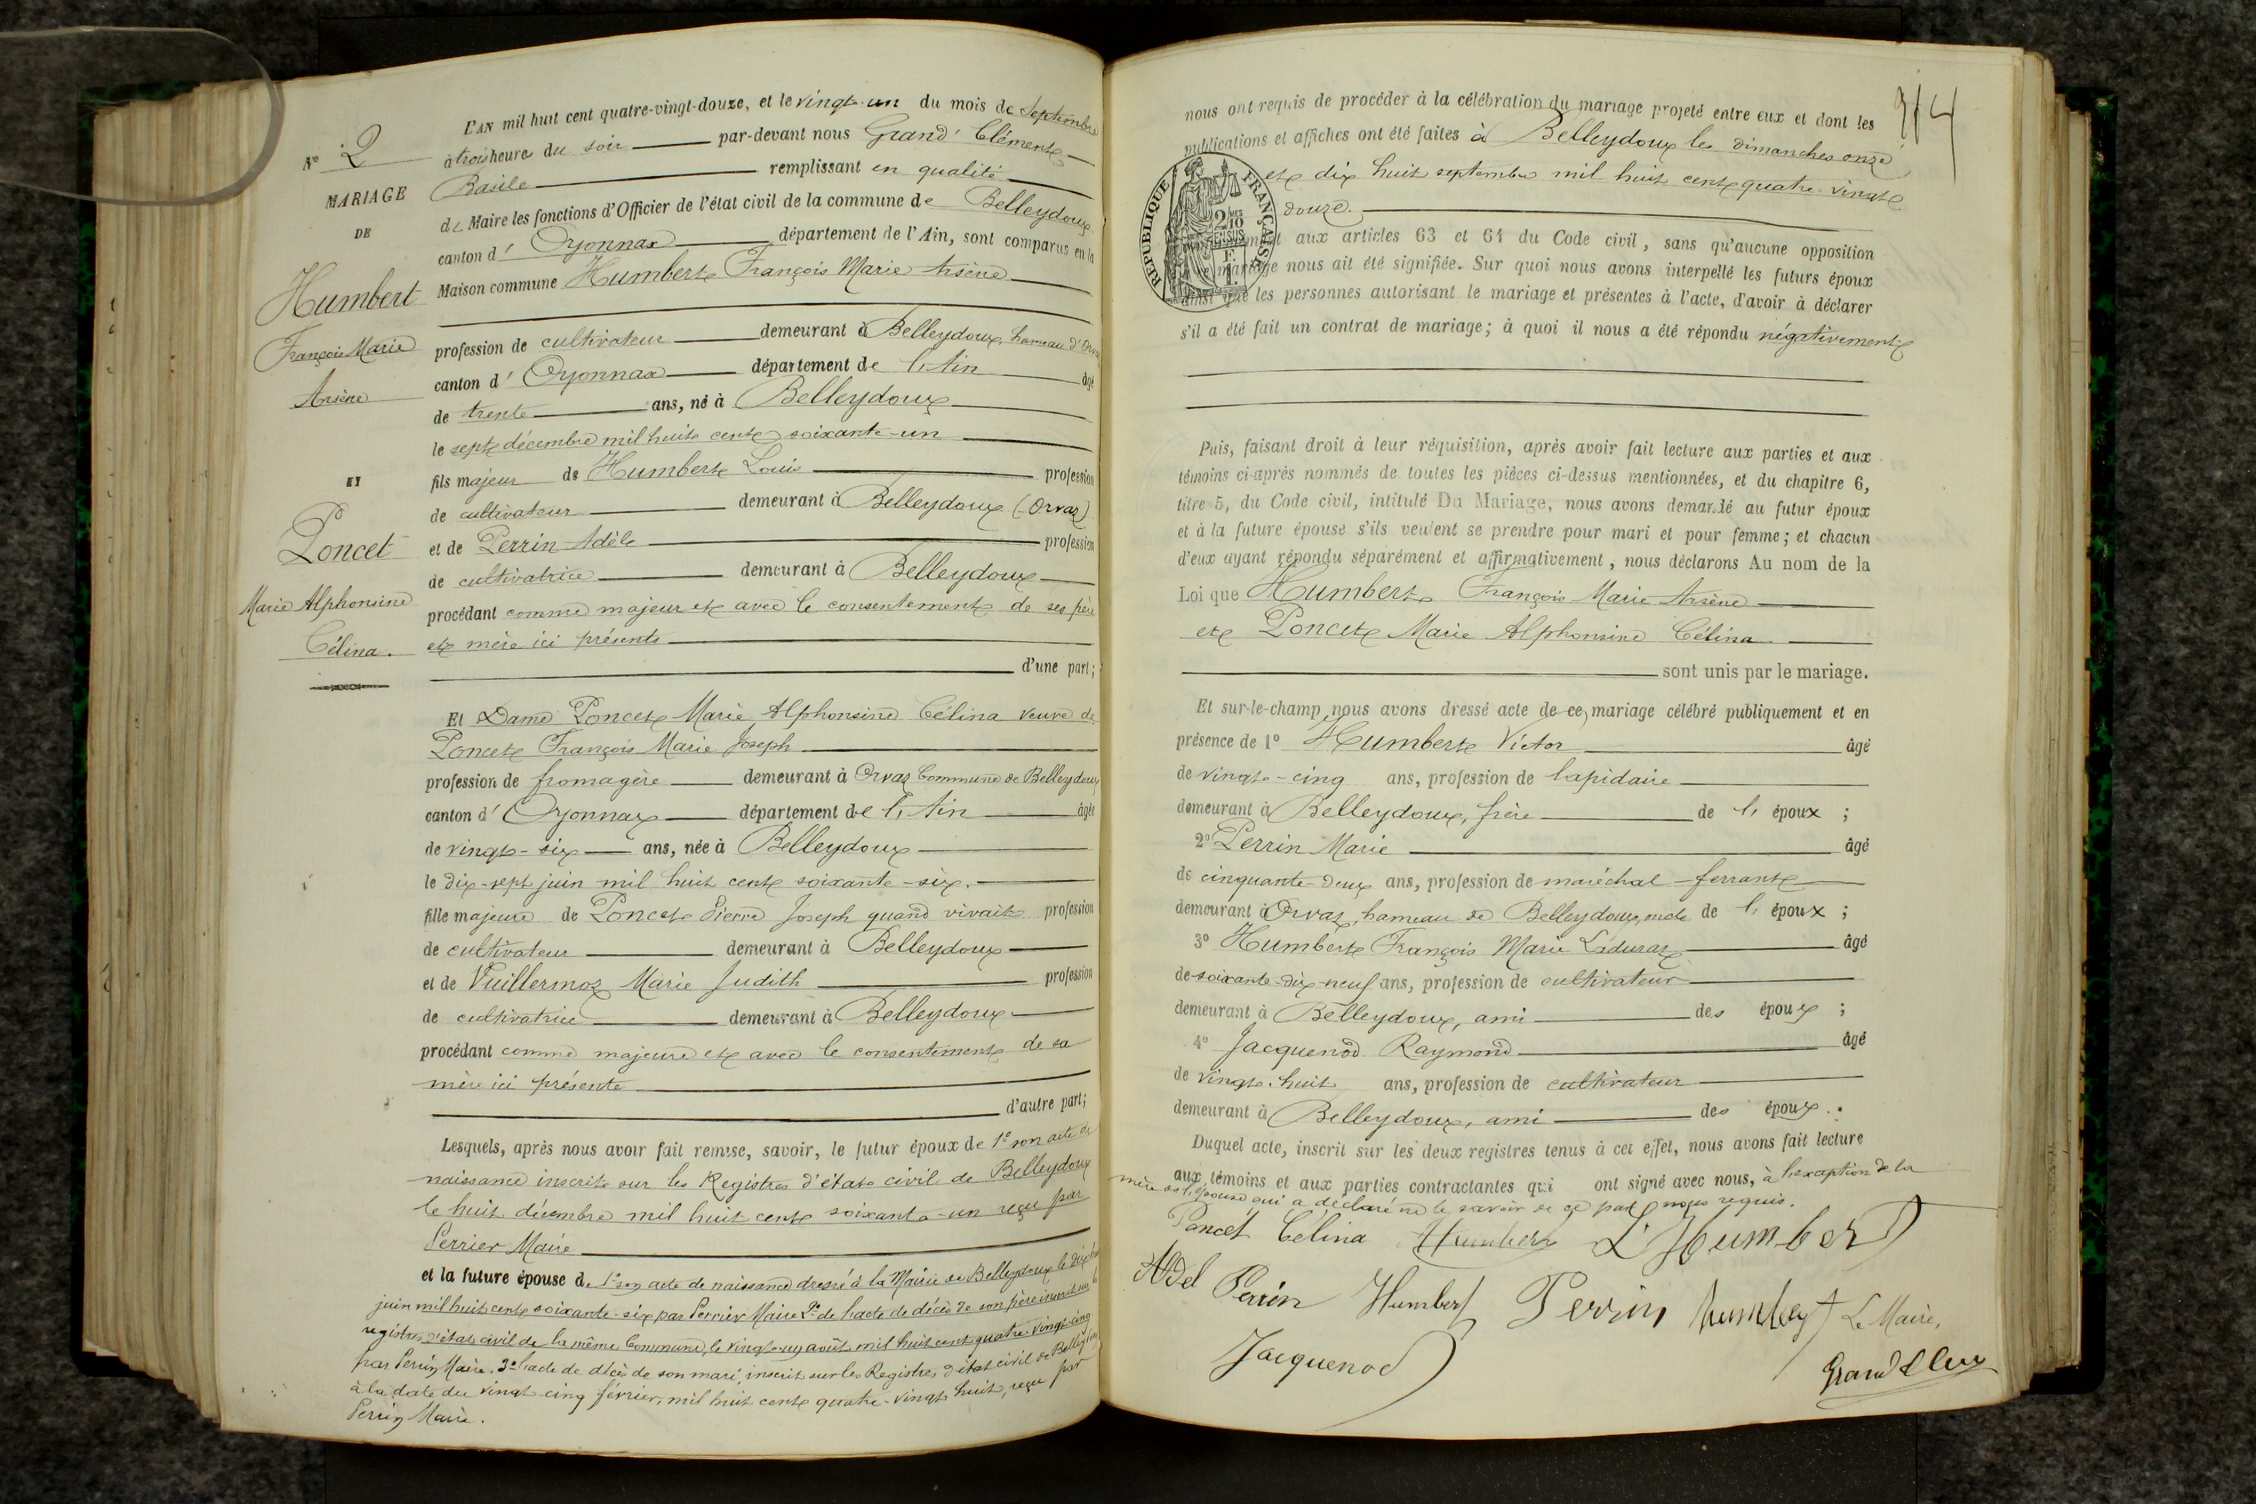 L'AN mil huit cent quatre-vingt-douze, et le vingt-un du mois de Septembre
à trois heures du soir par-devant nous Grand Clément
Basile remplissant en qualité
de Maire les fonctions d'Officier de l'état civil de la commune de Belleydoux
canton d' Oyonnax département de l'Ain, sont comparus en la
Maison commune Humbert François Marie Arsène
profession de cultivateur demeurant à Belleydoux, hameau d'Orvaz
canton d' Oyonnax département de l'Ain âgé
de trente ans, né à Belleydoux
le sept décembre mil huit cent soixante-un
fils majeur de Humbert Louis profession
de cultivateur demeurant à Belleydoux (Orvaz)
et de Perrin Adèle profession
de cultivatrice demeurant à Belleydoux
procédant comme majeur et avec le consentement de ses père
et mère ici présents
d'une part;
Nº 2
MARIAGE
DE
Humbert
François Marie
Arsène
ET
Poncet
Marie Alphonsine
Célina.
Et Dame Poncet Marie Alphonsine Célina veuve de
Poncet François Marie Joseph
profession de fromagère demeurant à Orvaz Commune de Belleydoux
canton d' Oyonnax département de l'Ain âgée
de vingt-six ans, née à Belleydoux
le dix-sept juin mil huit cent soixante-six.
fille majeure de Poncet Pierre Joseph quand vivait profession
de cultivateur demeurant à Belleydoux
et de Vuillermoz Marie Judith profession
de cultivatrice demeurant à Belleydoux
procédant comme majeure et avec le consentement de sa
mère ici présente
d'autre part;
Lesquels, après nous avoir fait remise, savoir, le futur époux de 1º son acte de
naissance inscrit sur les Registres d'état civil de Belleydoux
le huit décembre mil huit cent soixante-un reçu par
Perrier Maire
et la future épouse de 1º son acte de naissance dressé à la Mairie de Belleydoux le dix huit
juin mil huit cent soixante-six par Perrier Maire 2º de l'acte de décès de son père inscrit sur les
registres d'état civil de la même Commune, le vingt-un août mil huit cent quatre-vingt-cinq
par Perrin Maire. 3º l'acte de décès de son mari, inscrit sur les Registres d'état civil de Belleydoux
à la date du vingt-cinq février, mil huit cent quatre-vingt huit, reçu par
Perrin Maire.
314
nous ont requis de procéder à la célébration du mariage projeté entre eux et dont les
publications et affiches ont été faites à Belleydoux les dimanches onze
et dix huit septembre mil huit cent quatre-vingt
douze.
RÉPUBLIQUE FRANÇAISE
2/10 EN SUS
aux articles 63 et 64 du Code civil, sans qu'aucune opposition
mariage nous ait été signifiée. Sur quoi nous avons interpellé les futurs époux
ainsi que les personnes autorisant le mariage et présentes à l'acte, d'avoir à déclarer
s'il a été fait un contrat de mariage; à quoi il nous a été répondu négativement
Puis, faisant droit à leur réquisition, après avoir fait lecture aux parties et aux
témoins ci-après nommés de toutes les pièces ci-dessus mentionnées, et du chapitre 6,
titre 5, du Code civil, intitulé Du Mariage, nous avons demandé au futur époux
et à la future épouse s'ils veulent se prendre pour mari et pour femme; et chacun
d'eux ayant répondu séparément et affirmativement, nous déclarons Au nom de la
Loi que Humbert François Marie Arsène
et Poncet Marie Alphonsine Célina
sont unis par le mariage.
Et sur-le-champ nous avons dressé acte de ce mariage célébré publiquement et en
présence de 1º Humbert Victor âgé
de vingt-cinq ans, profession de lapidaire
demeurant à Belleydoux, frère de l' époux ;
2º Perrin Marie âgé
de cinquante-deux ans, profession de maréchal-ferrant
demeurant à Orvaz, hameau de Belleydoux, oncle de l' époux ;
3º Humbert François Marie Laduraz âgé
de soixante-dix-neuf ans, profession de cultivateur
demeurant à Belleydoux, ami des époux ;
4º Jacquenod Raymond âgé
de vingt-huit ans, profession de cultivateur
demeurant à Belleydoux, ami des époux.
Duquel acte, inscrit sur les deux registres tenus à cet effet, nous avons fait lecture
aux témoins et aux parties contractantes qui ont signé avec nous, à l'exception de la
mère de l'épouse qui a déclaré ne le savoir de ce par nous requis.
Poncet Célina Humbert L Humbert
Adel Perrin Humbert Perrin humbert Le Maire,
Jacquenod
Grand Clém